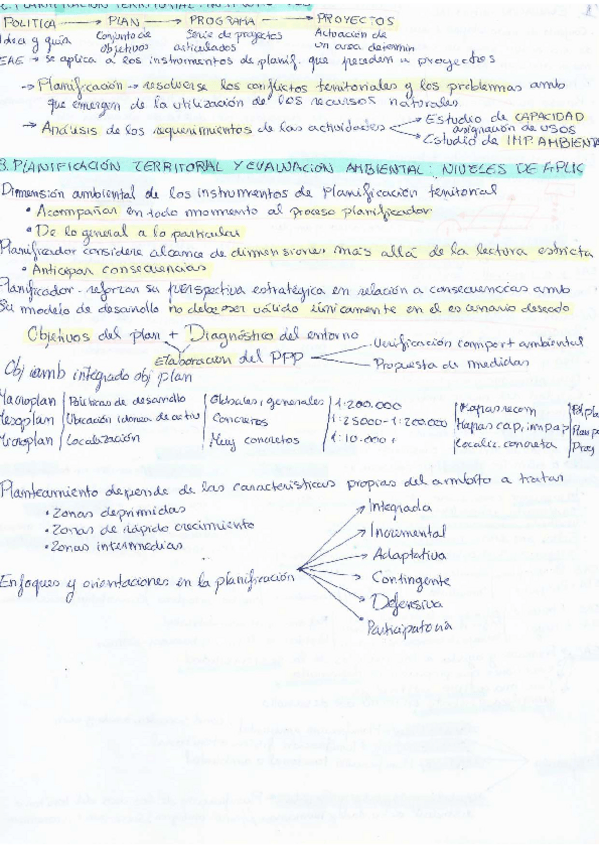 POLITICA → PLAN → PROGRAMA → PROYECTOS
Idea y guía Conjunto de objetivos Serie de proyectos articulados Actuación de un area determin
EAE → se aplica a los instrumentos de planif. que preceden a proyectos
→ Planificación → resolverse los conflictos territoriales y los problemas amb
que emergen de la utilización de los recursos naturales
→ Análisis de los requerimientos de las actividades
→ Estudio de CAPACIDAD
asignación de usos
→ Estudio de IMP. AMBIENTA
3. PLANIFICACIÓN TERRITORAL Y EVALUACIÓN AMBIENTAL: NIVELES DE APLIC
Dimensión ambiental de los instrumentos de planificación territorial
• Acompañar en todo momento al proceso planificador
• De lo general a lo particular
Planificador considere alcance de dimensiones más allá de la lectura estricta
• Anticipar consecuencias
Planificador - reforzar su perspectiva estratégica en relación a consecuencias amb
Su modelo de desarrollo no debe ser válido únicamente en el escenario deseado
Objetivos del plan + Diagnóstico del entorno
Elaboración del PPP
Verificación comport ambiental
Propuesta de medidas
Obj amb integrado obj plan
Macroplan | Políticas de desarrollo | Globales, generales | 1:200.000 | Mapas recom
Mesoplan | Ubicación idonea de activ | Concretos | 1:25000-1:200.000 | Mapas cap, imp, ap
Microplan | Localización | Muy concretos | 1:10.000 | Localiz. concreta | Proy
Planteamiento depende de las características propias del ámbito a tratar
• Zonas deprimidas
• Zonas de rápido crecimiento
• Zonas intermedias
Enfoques y orientaciones en la planificación
→ Integrada
→ Incremental
→ Adaptativa
→ Contingente
→ Defensiva
→ Participatoria